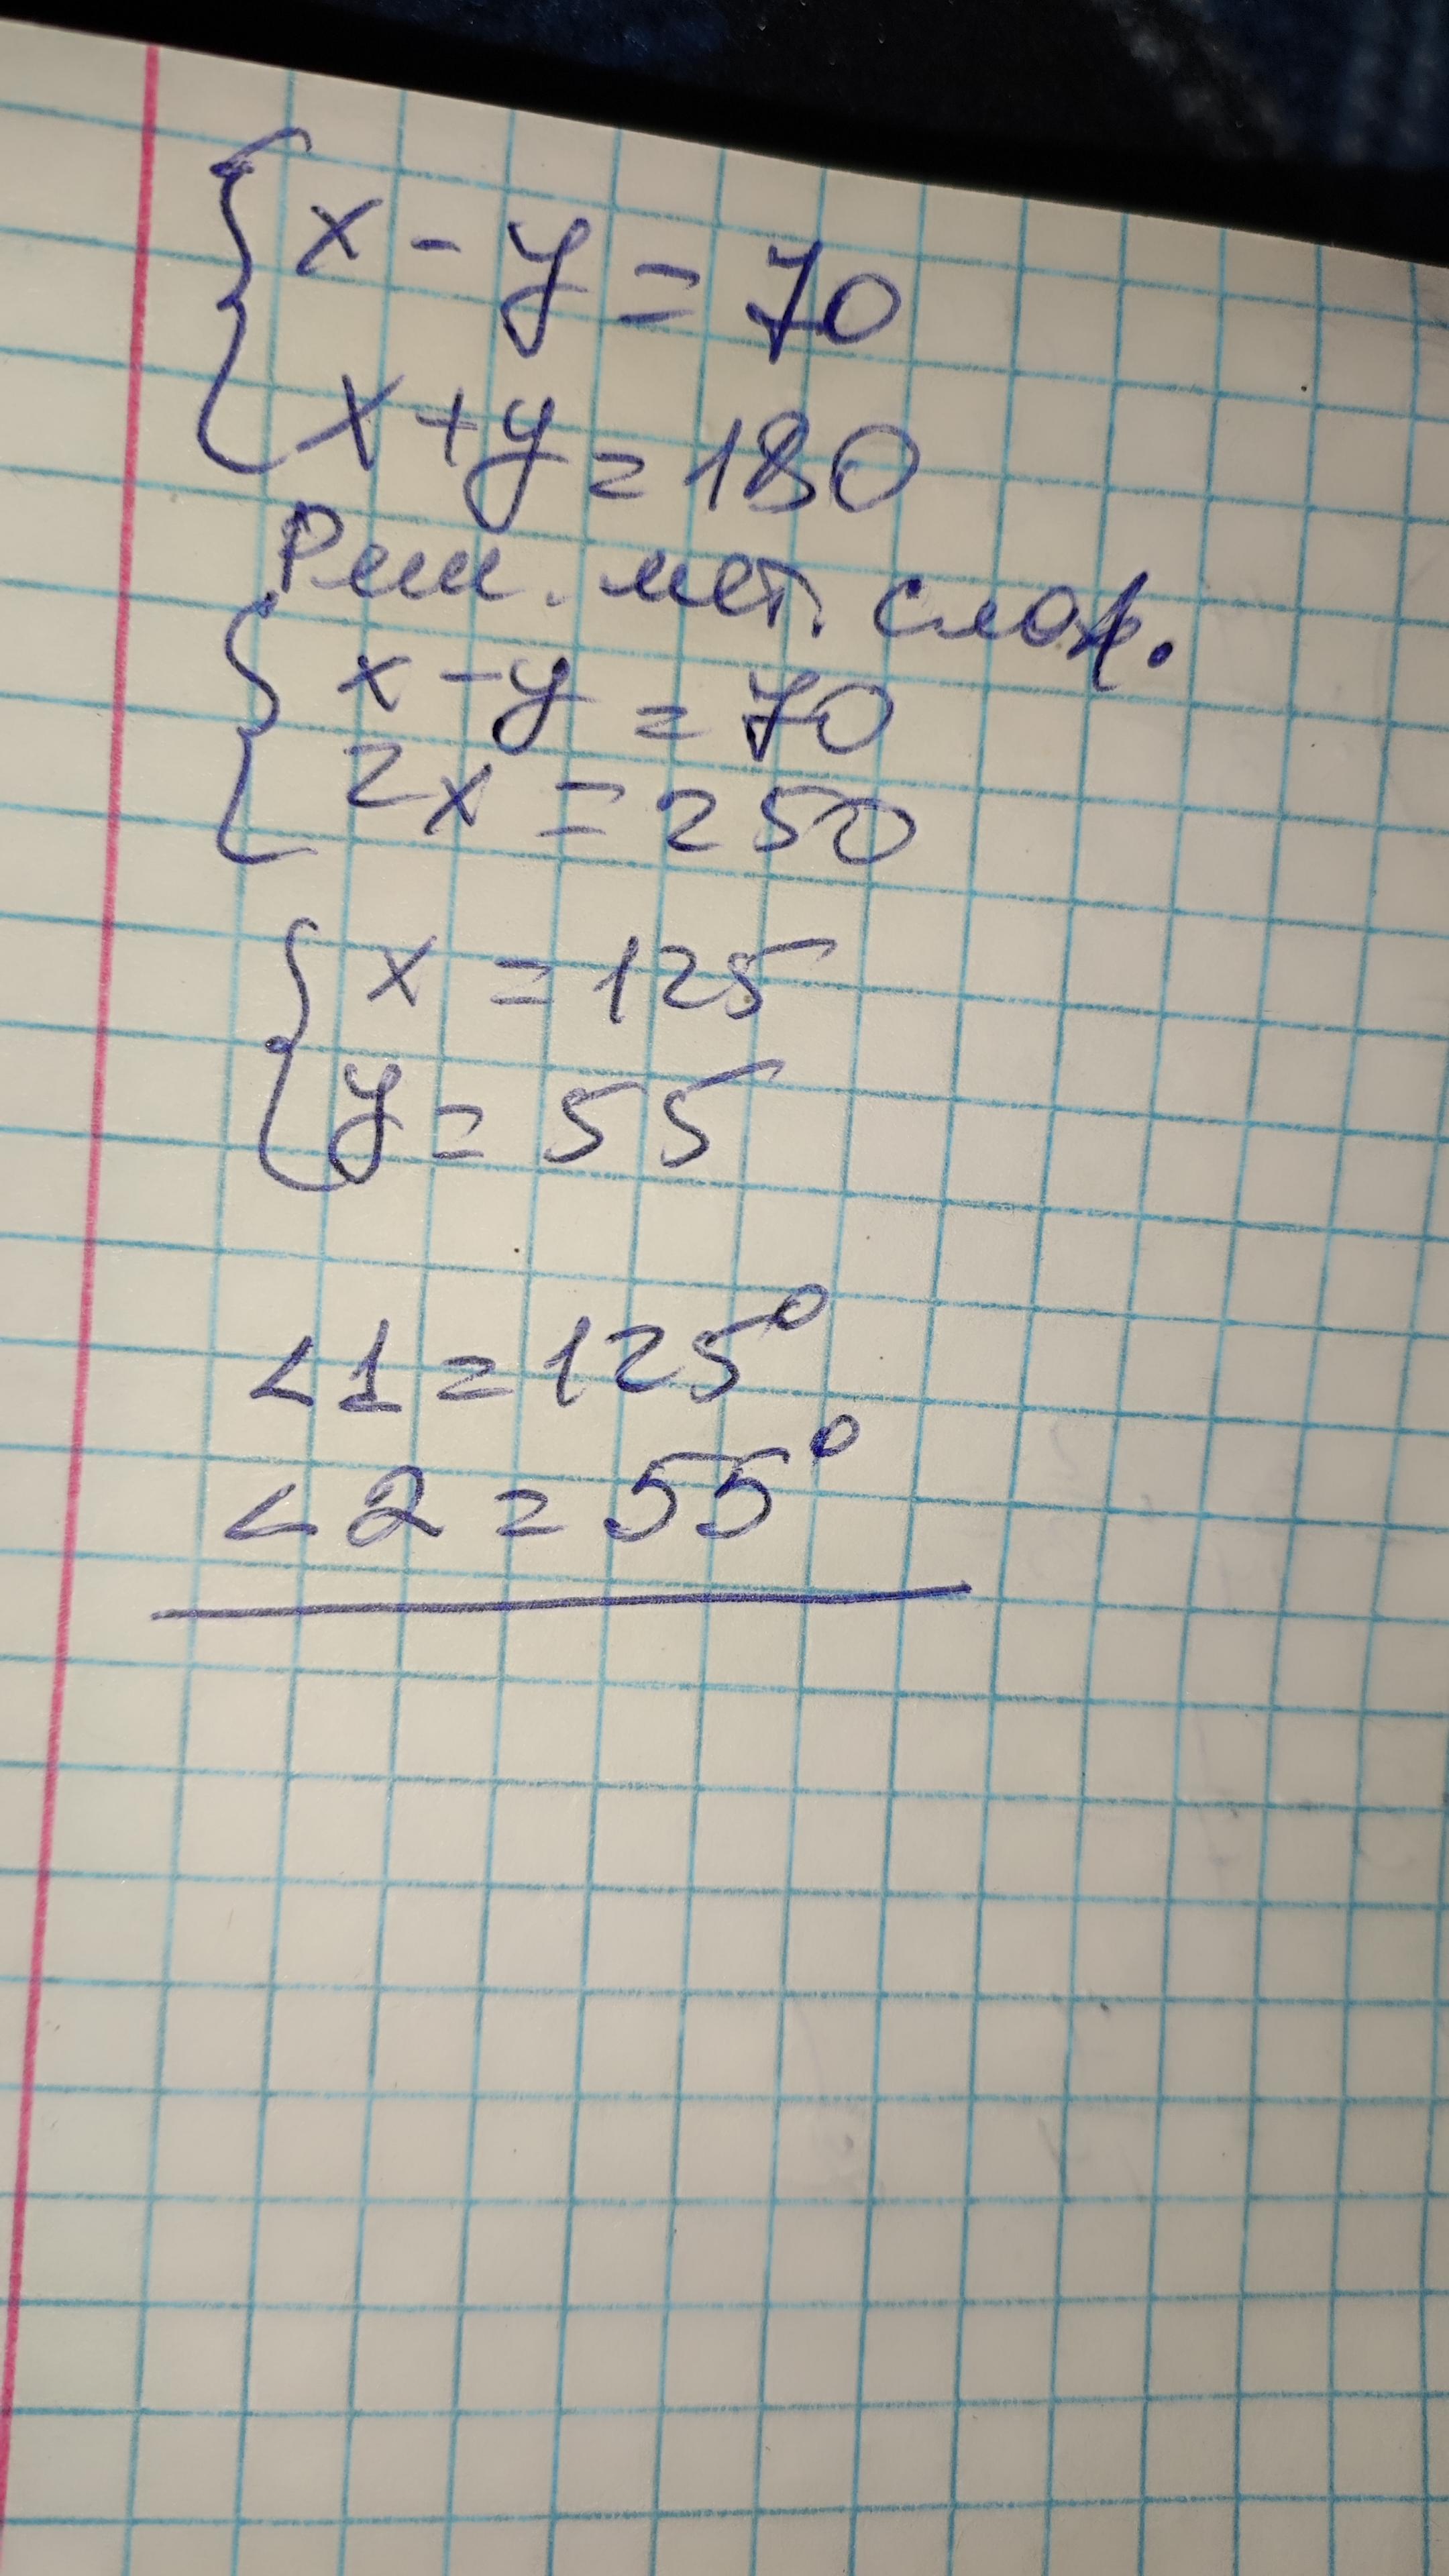 { x - y = 70
x + y = 180
Реш. мет. слож.
{ x - y = 70
2x = 250
{ x = 125
y = 55
<1 = 125°
<2 = 55°